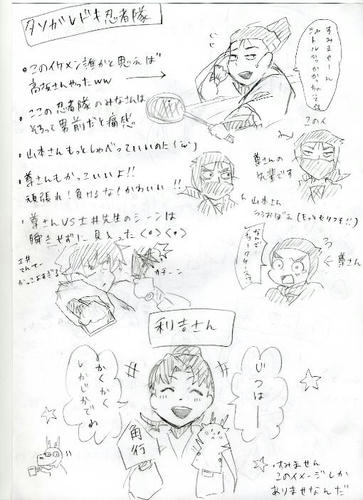 タソガレドキ忍者隊
すみませーん
・このイケメン誰かと思えば
高坂さんやったww
・ここの忍者隊のみなさんは
そろって男前だと痛感
・山本さんもっとしゃべっていいのだ(´ω`)
・尊さんもかっこいいよ!!
頑張れ!負けるなかわいい!!
・尊さんVS土井先生のシーンは
瞬きせずに見入った<●><●>
尊さんの
先輩です
山本さん
(もっとセリフを!!)
←尊さん
土井
せんせー
かっこよすぎる
ガチーン
利吉さん
じつはー
かくかく
しかじかでね
角行
すみません
このイメージしか
ありませんんだ